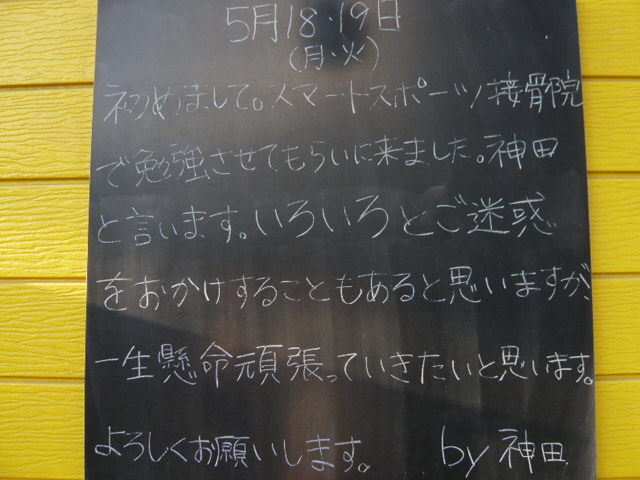 5月18・19日
(月・火)
初めまして。スマートスポーツ接骨院
で勉強させてもらいに来ました。神田
と言います。いろいろとご迷惑
をおかけすることもあると思いますが、
一生懸命頑張っていきたいと思います。
よろしくお願いします。 by 神田